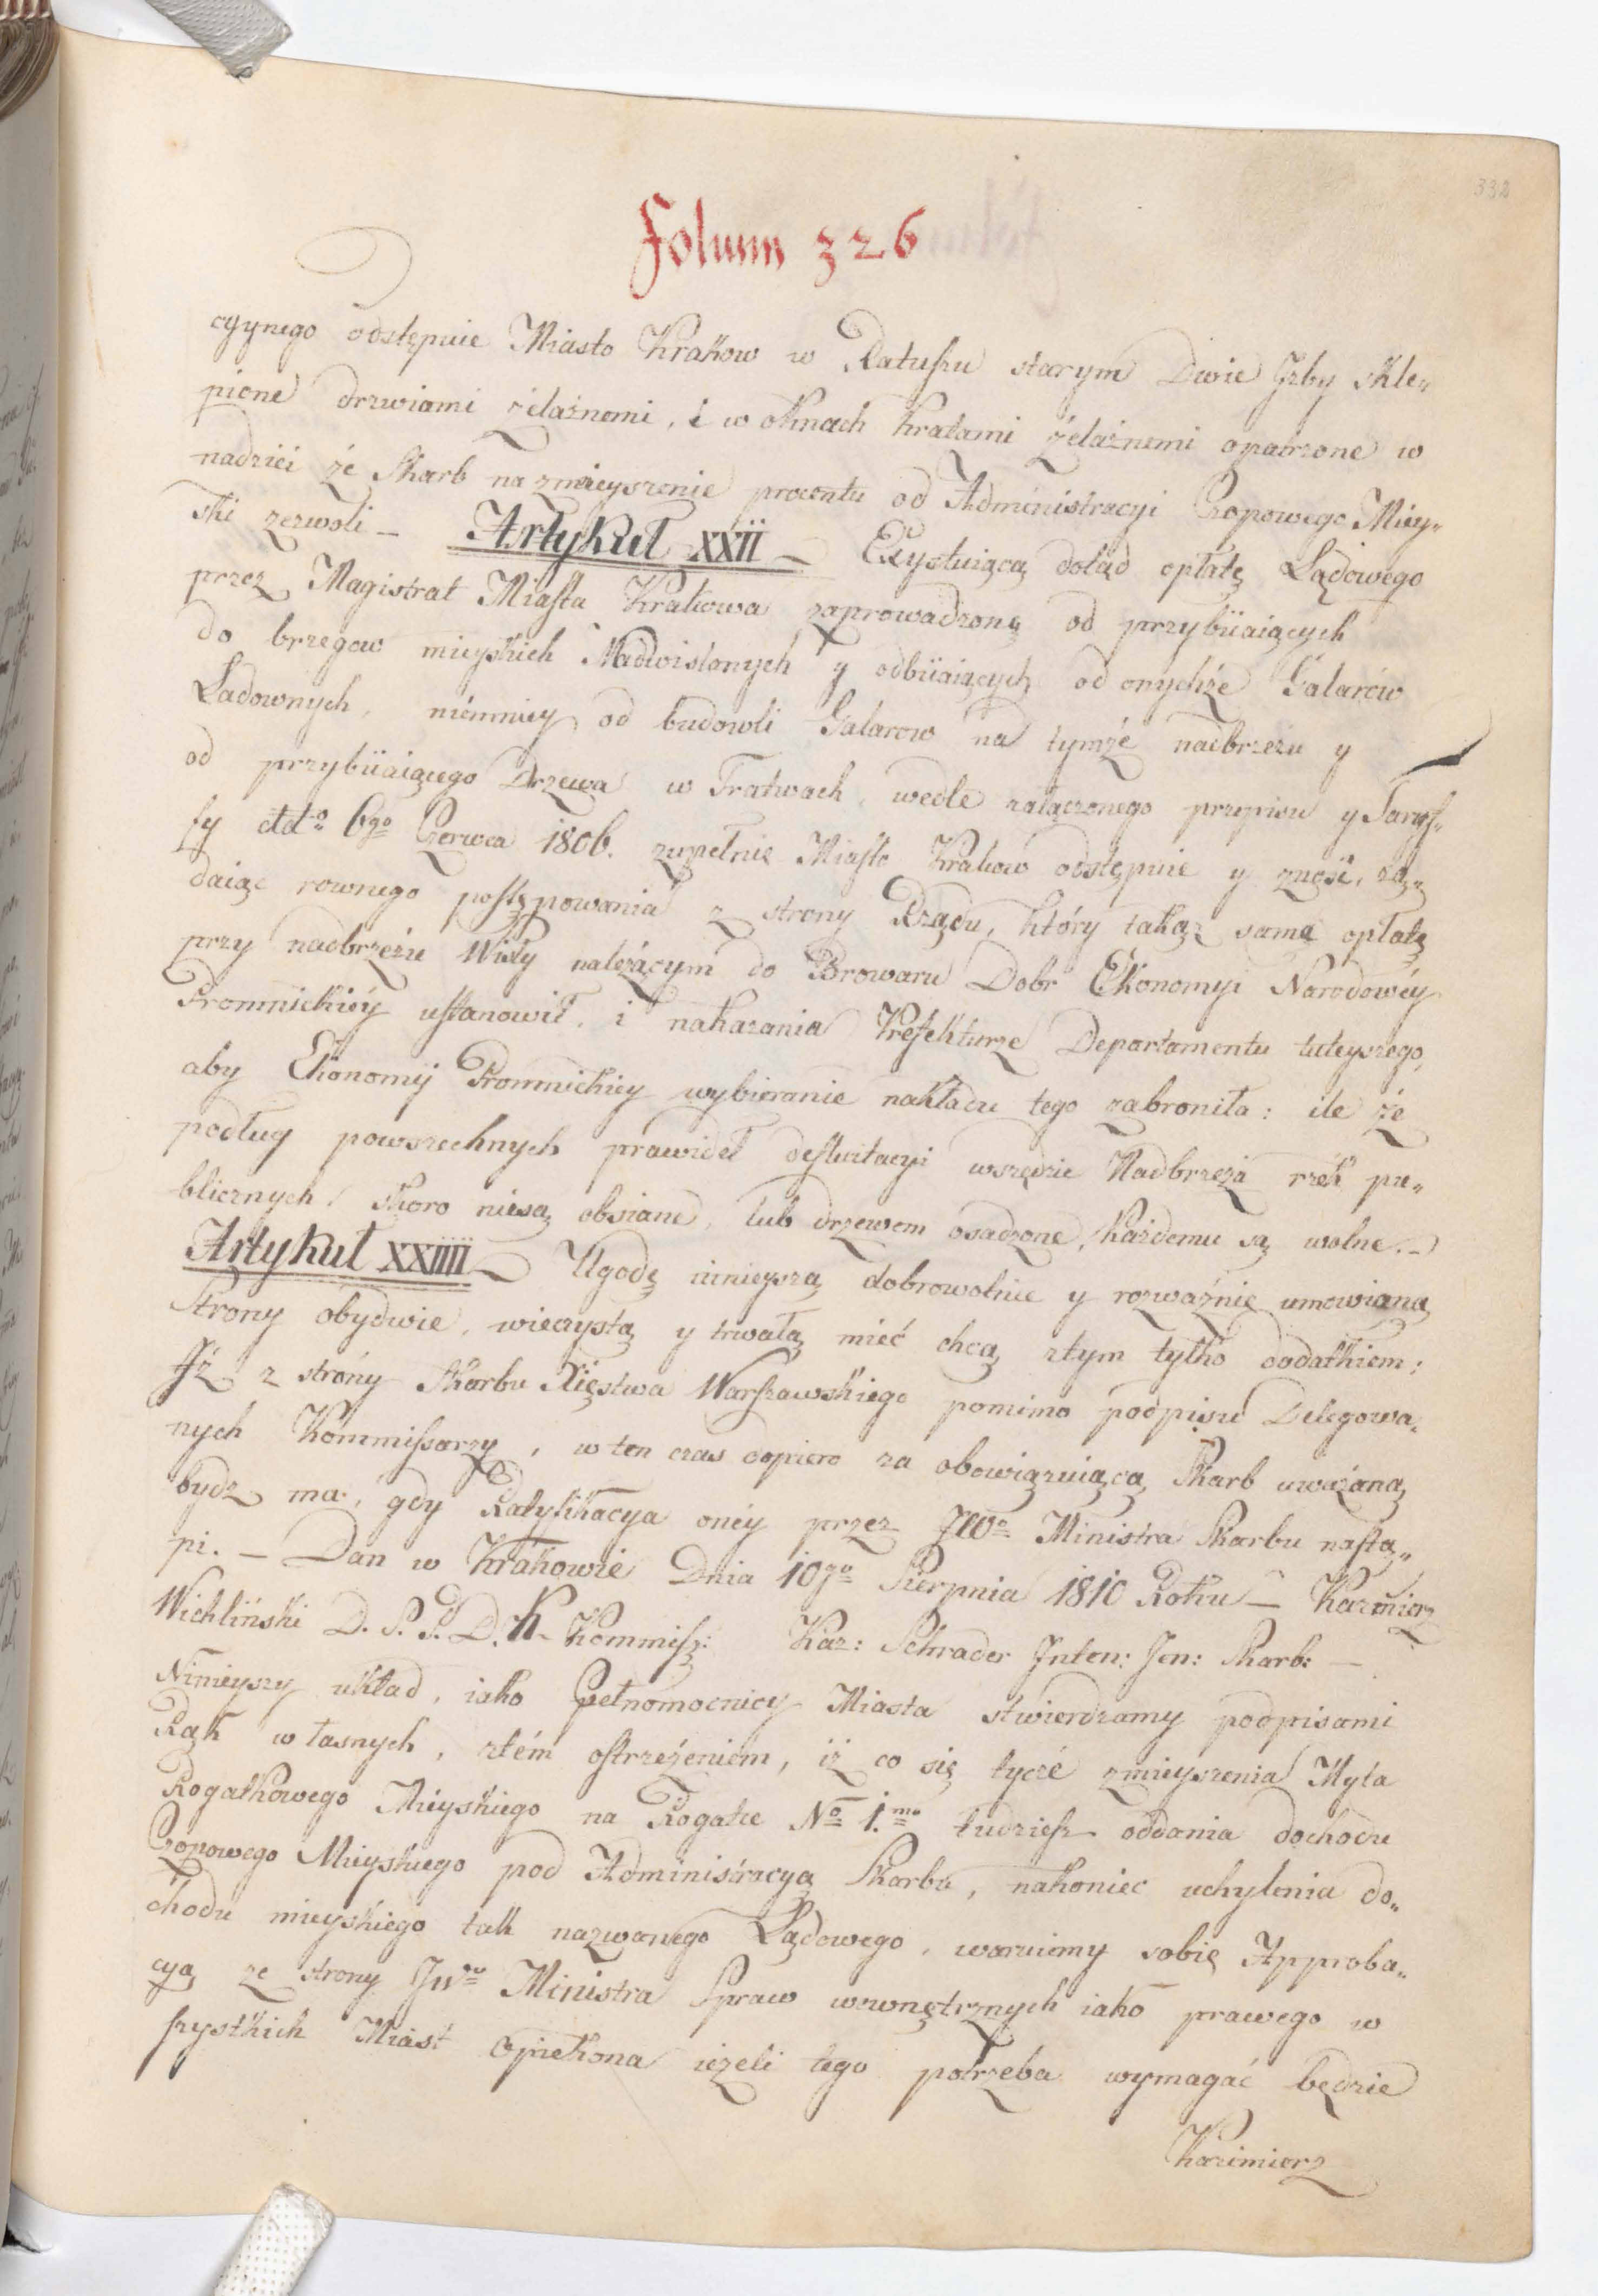 332
Folium 326
cyynego odstępuie Miasto Krakow w Ratuszu starym Dwie Jzby skle„
pione drzwiami żelaznemi, i w oknach kratami żelaznemi opatrzone w
nadziei że Skarb na zmieyszenie procentu od Administracyi Czopowego Miey„
ski zezwoli – Artykuł XXII – Exystuiącą dotąd opłatę Lądowego
przez Magistrat Miasta Krakowa zaprowadzoną od przybiiaiących
do brzegow mieyskich Nadwislanych y odbiiaiących od onychże Galarów
Ładownych, niemniey od budowli Galarow na tymże nadbrzeżu y
od przybiiaiącego Drzewa w Tratwach, wedle załączonego przepisu y Taryf„
fy dtto 6go Czerwca 1806. zupełnie Miasto Krakow odstępuie y znosi, żą„
daiąc rownego postępowania z strony Rządu, który takąż samę opłatę
przy nadbrzeżu Wisły należącym do Browaru Dobr Ekonomyi Narodowéy
Promnickiéy ustanowił, i nakazania Prefekturze Departamentu tuteyszego,
aby Ekonomij Promnickiey wybieranie nakładu tego zabroniła: ile że
podług powszechnych prawideł defluitacyi wszędzie Nadbrzeża rzék pu„
blicznych, skoro niesą obsiane, lub drzewem osadzone, każdemu są wolne. –
Artykuł XXIIII – Ugodę ninieyszą dobrowolnie y rozważnie umowioną
Strony obydwie, wieczystą y trwałą mieć chcą ztym tylko dodatkiem;
Jż z strony Skarbu Xięstwa Warszawskiego pomimo podpisu Delegowa„
nych Kommissarzy, w ten czas dopiero za obowiązuiącą Skarb uważaną
bydz ma, gdy Ratyfikacya onéy przez JWo Ministra Skarbu nastą„
pi. – Dan w Krakowie Dnia 10go Sierpnia 1810 Roku – Kazmierz
Wichliński D. P. S. D. K. Kommisz: Kaz: Schrader Jnten: Jen: Skarb: –
Ninieyszy układ, iako Pełnomocnicy Miasta stwierdzamy podpisami
Rąk własnych, ztém ostrzeżeniem, iż co się tycze zmieyszenia Myta
Rogatkowego Mieyskiego na Rogatce No 1.mo tudziesz oddania dochodu
Czopowego Mieyskiego pod Administracyą Skarbu, nakoniec uchylenia do„
chodu mieyskiego tak nazwanego Lądowego, waruiemy sobie Approba„
cyą ze strony JWgo Ministra Spraw wewnętrznych iako prawego w
szystkich Miast Opiekona ieżeli tego potrzeba wymagać będzie
Kazimierz